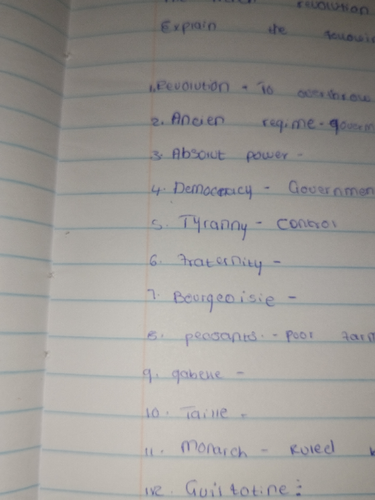 revolution
Explain the
1. Revolution - To overthrow
2. Ancien regime - Governm
3. Absolut power -
4. Democracy - Governmen
5. Tyranny - Control
6. Fraternity -
7. Bourgeoisie -
8. peasants - Poor farm
9. gabelle -
10. Taille -
11. Monarch - Ruled
12. Guillotine: